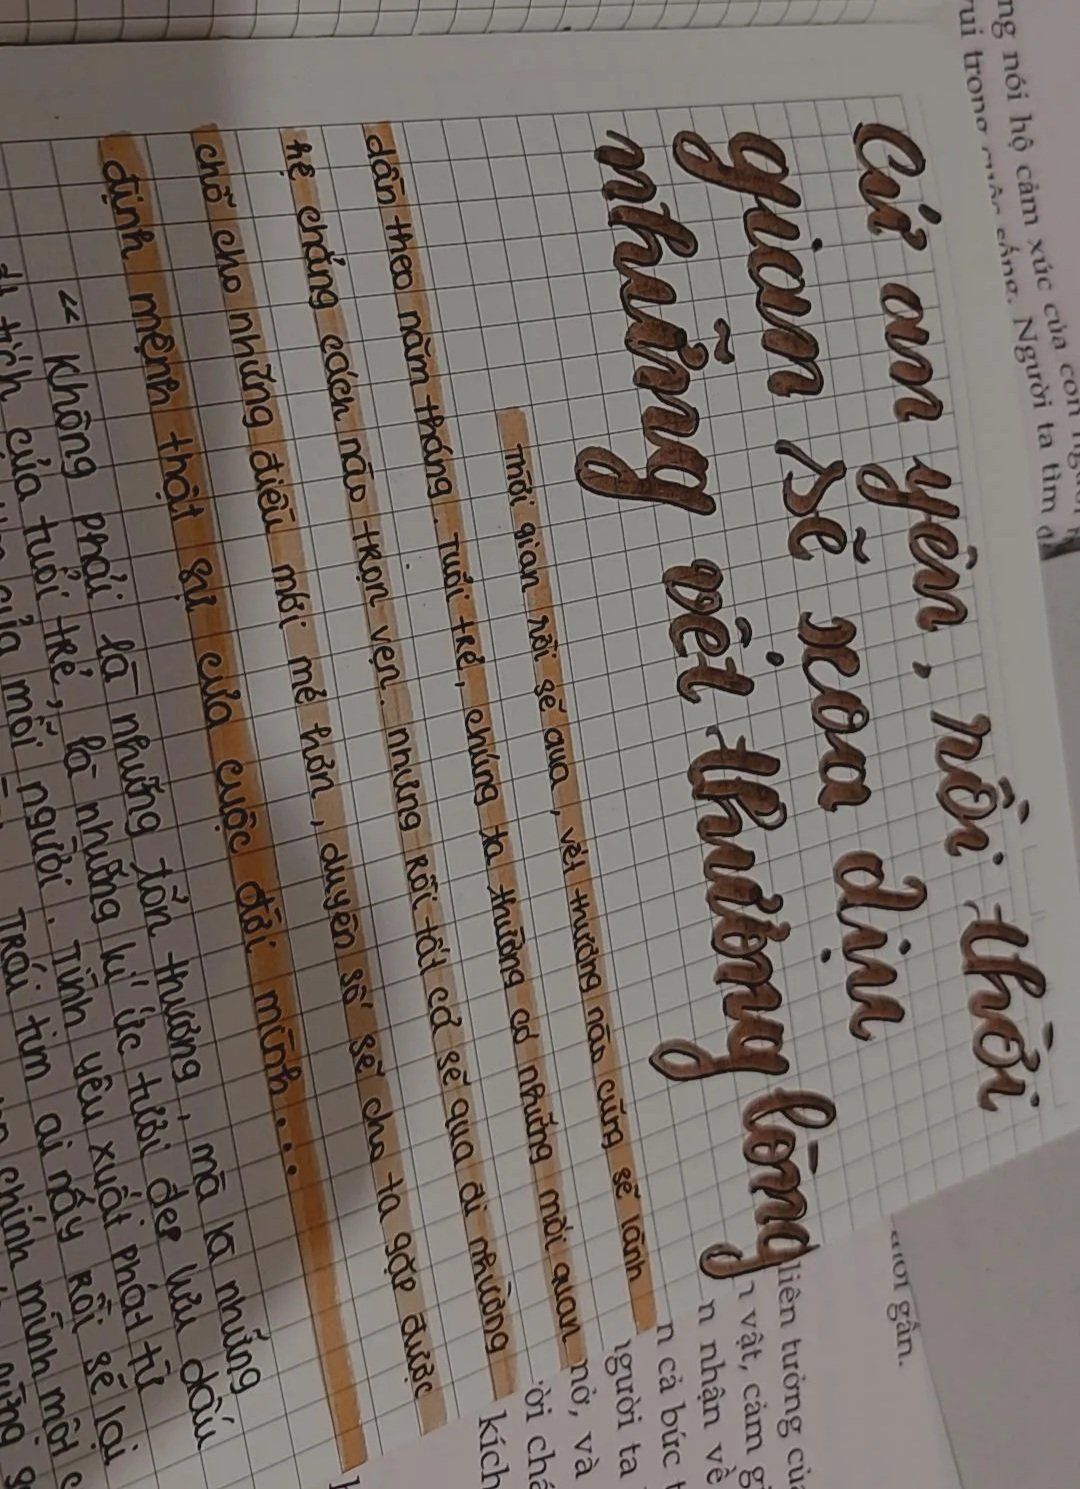 Cứ an yên, rồi thời
gian sẽ xoa dịu
những vết thương lòng
Thời gian rồi sẽ qua, vết thương nào cũng sẽ lành
dần theo năm tháng. Tuổi trẻ, chúng ta thường có những mối quan
hệ chẳng cách nào trọn vẹn. nhưng rồi tất cả sẽ qua đi nhường
chỗ cho những điều mới mẻ hơn, duyên số sẽ cho ta gặp được
định mệnh thật sự của cuộc đời mình...
" Không phải là những tổn thương, mà là những
tích của tuổi trẻ, là những kí ức tươi đẹp lưu dấu
của mỗi người. Tình yêu xuất phát từ
Trái tim ai nấy rồi sẽ lại
chính mình một
ng nói hộ cảm xúc của con
vui trong
Người ta tìm
gắn.
liên tưởng
vật, cảm
n nhận về
n cả bức
người ta
nở, và
kích